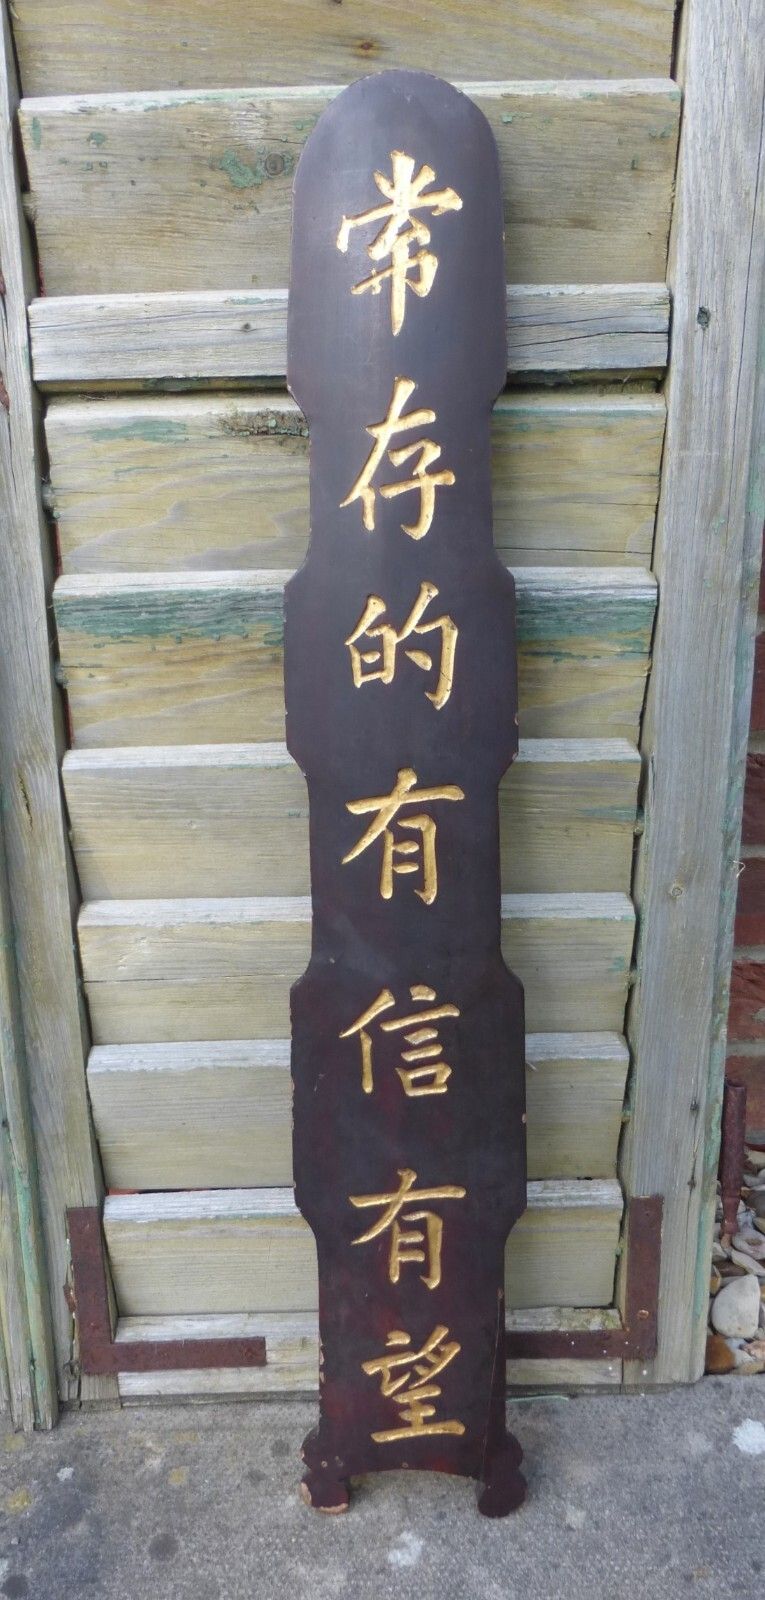 常存的有信有望